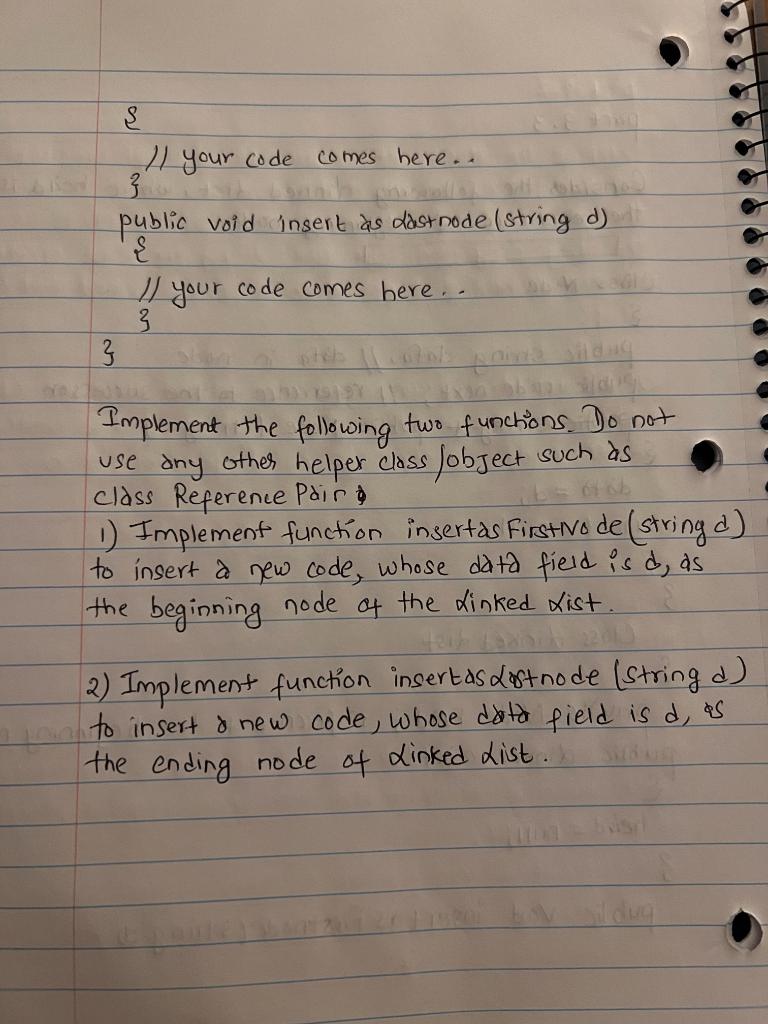 {
// your code comes here..
}
public void insert as Lastnode (string d)
{
// your code comes here...
}
}
Implement the following two functions. Do not
use any other helper class/object such as
class Reference Pair.
1) Implement function insertas FirstNode (string d)
to insert a new code, whose data field is d, as
the beginning node of the Linked List.
2) Implement function insertasLastnode (String d)
to insert a new code, whose data field is d, as
the ending node of Linked List.